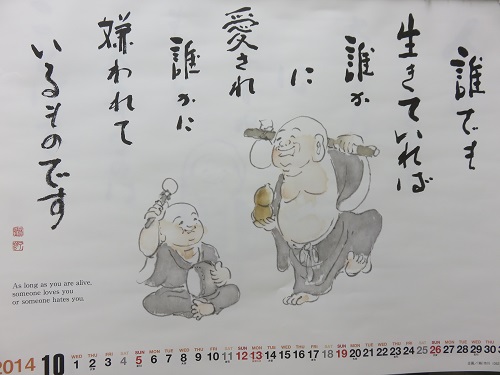 誰でも
生きていれば
誰か
に
愛され
誰かに
嫌われて
いるものです
As long as you are alive,
someone loves you
or someone hates you
2014 10
WED THU FRI SAT SUN MON TUE WED THU FRI SAT SUN MON TUE WED THU FRI SAT SUN MON TUE WED THU FRI SAT SUN MON TUE WED THU
1 2 3 4 5 6 7 8 9 10 11 12 13 14 15 16 17 18 19 20 21 22 23 24 25 26 27 28 29 30